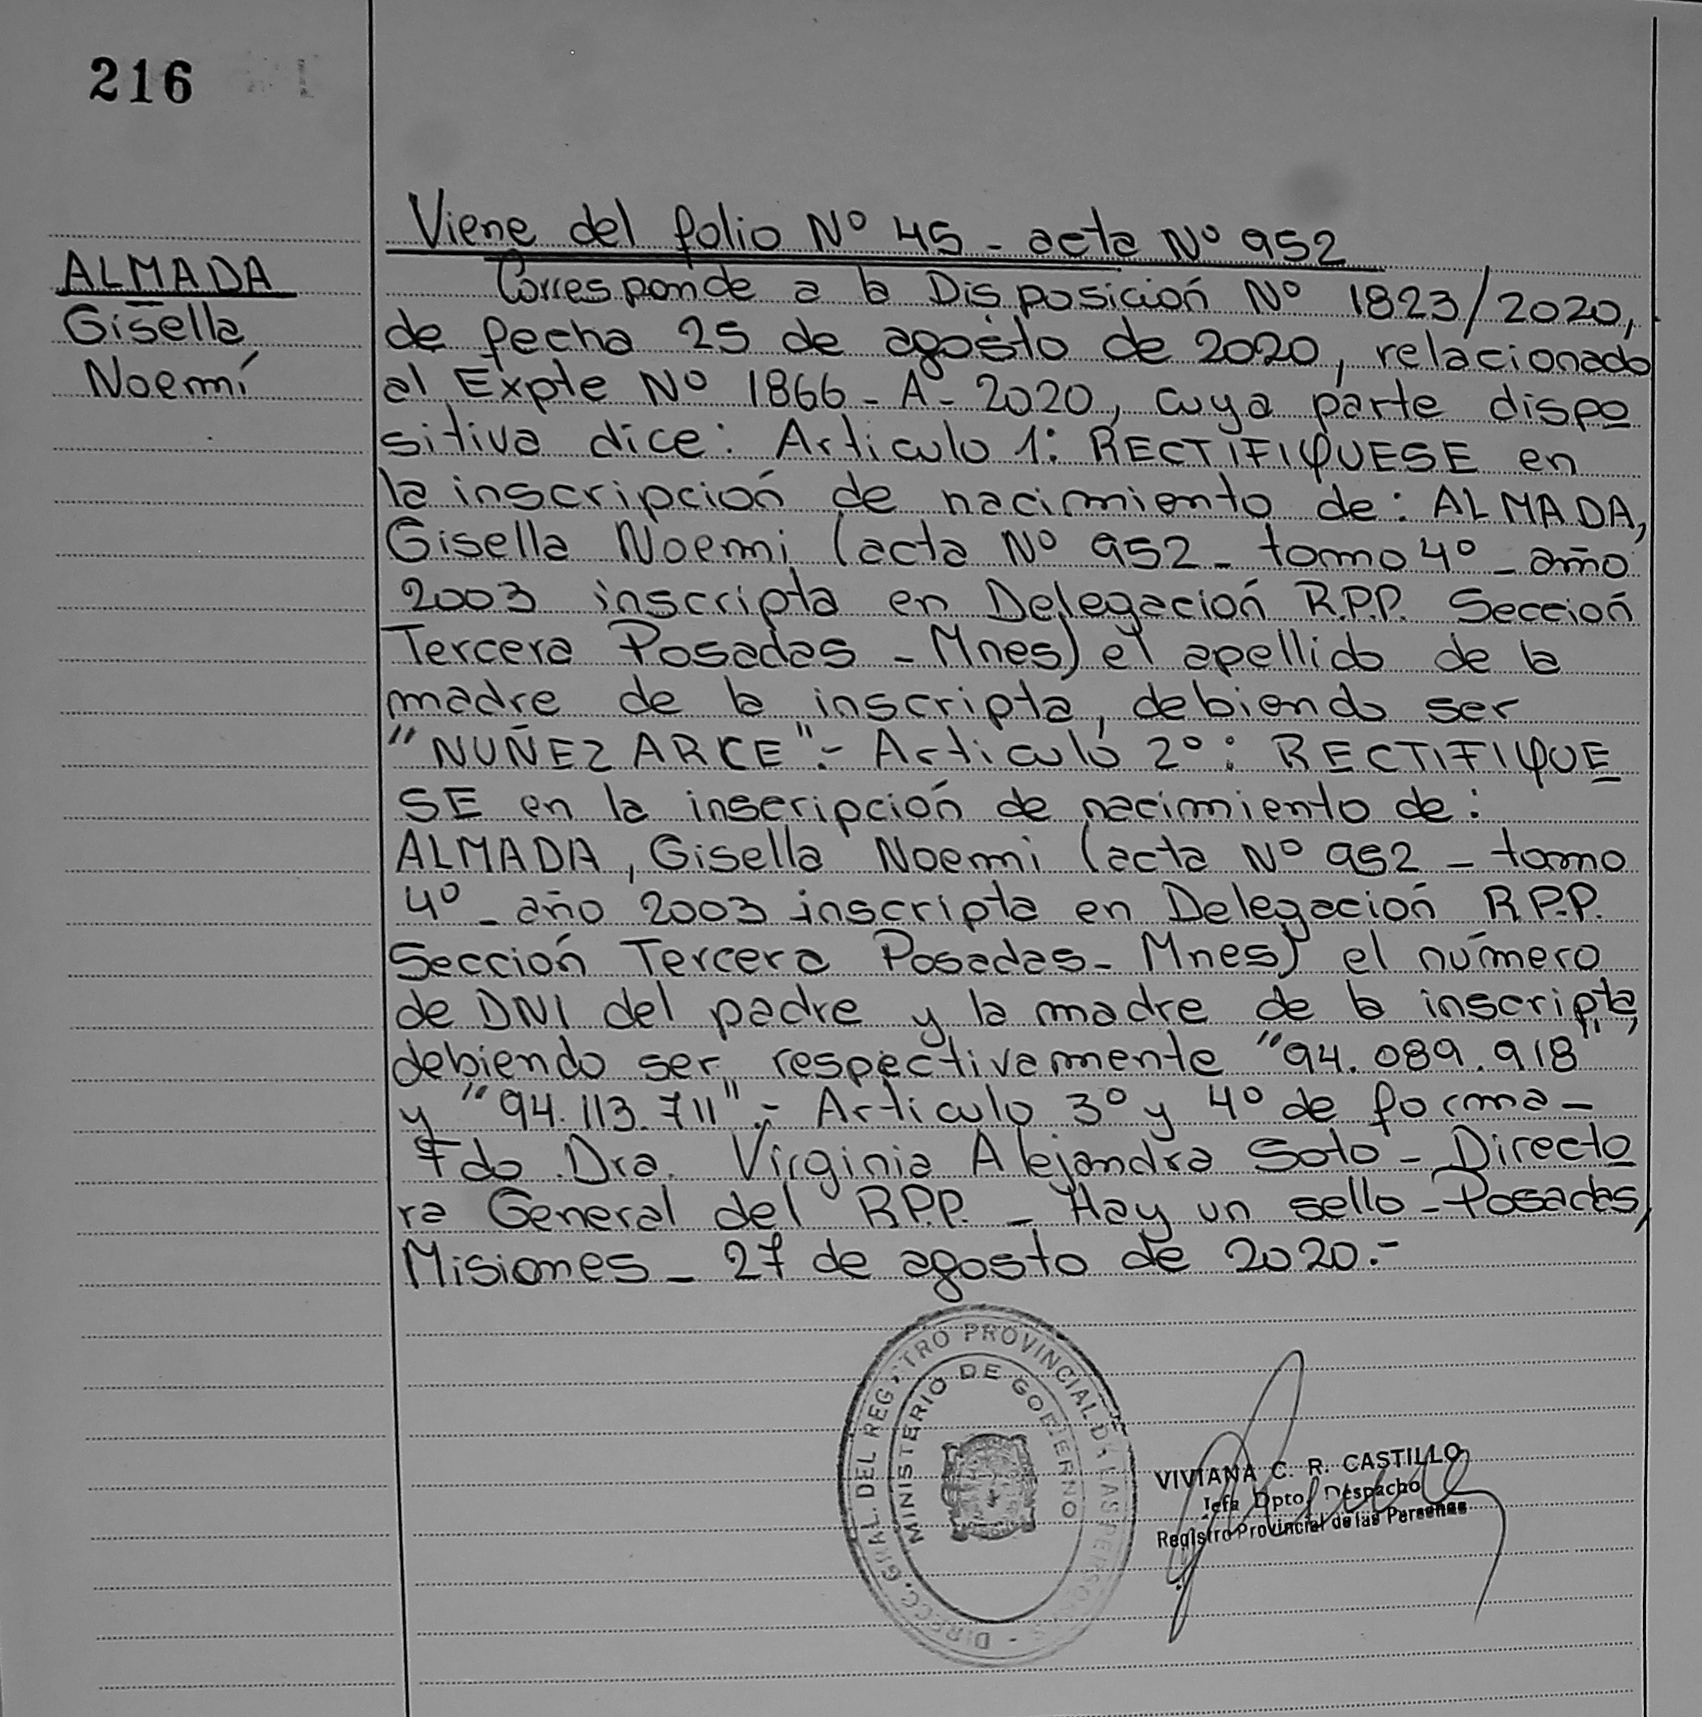 216
ALMADA
Gisella
Noemí
Viene del folio Nº 45 - acta Nº 952
Corresponde a la Disposición Nº 1823/2020,
de fecha 25 de agosto de 2020, relacionado
al Expte Nº 1866 - A - 2020, cuya parte dispo
sitiva dice: Articulo 1: RECTIFIQUESE en
la inscripción de nacimiento de: ALMADA,
Gisella Noemi (acta Nº 952 - tomo 4º - año
2003 inscripta en Delegación R.P.P. Sección
Tercera Posadas - Mnes) el apellido de la
madre de la inscripta, debiendo ser
"NUÑEZ ARCE".- Articulo 2º: RECTIFIQUE
SE en la inscripción de nacimiento de:
ALMADA, Gisella Noemi (acta Nº 952 - tomo
4º - año 2003 inscripta en Delegación R.P.P.
Sección Tercera Posadas - Mnes) el número
de DNI del padre y la madre de la inscripta,
debiendo ser respectivamente "94.089.918"
y "94.113.711".- Articulo 3º y 4º de forma -
Fdo. Dra. Virginia Alejandra Soto - Directo
ra General del R.P.P. - Hay un sello - Posadas,
Misiones - 27 de agosto de 2020.-
DIRECC. GRAL. DEL REGISTRO PROVINCIAL DE LAS PERSONAS -
MINISTERIO DE GOBIERNO
VIVIANA C. R. CASTILLO
Jefa Dpto Despacho
Registro Provincial de las Personas